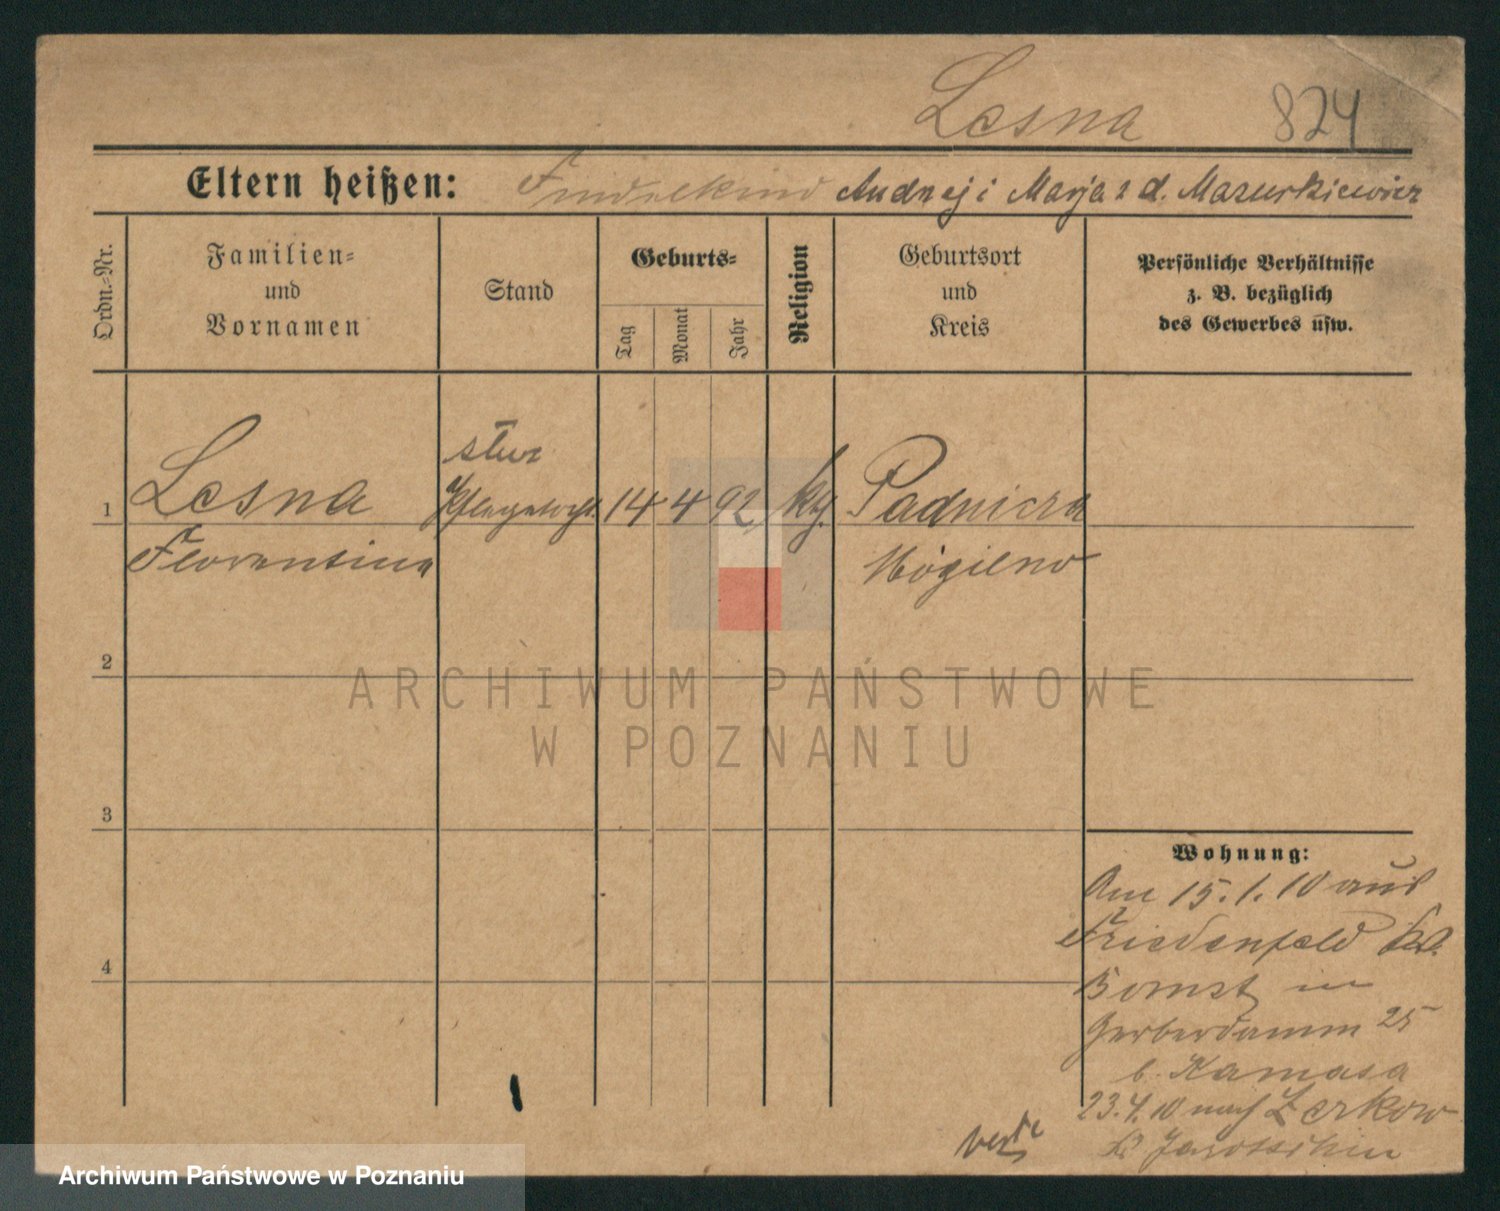 Lesna 824
Eltern heißen: Findelkind Andrzej i Marja z d. Mazurkiewicz
Ordn.=Nr.
Familien=
und
Vornamen
Stand
Geburts=
Tag
Monat
Jahr
Religion
Geburtsort
und
Kreis
Persönliche Verhältnisse
z. B. bezüglich
des Gewerbes usw.
1 Lesna 14 4 92 kth. Padniewa
Florentina Mogilno
2
3
4
Wohnung:
Am 15.1.10 aus
Friedenfeld Kr.
Bomst in
Gerberdamm 25
b. Kamasa
23.4.10 nach Zerkow
Kr Jarotschin
verte
ARCHIWUM PAŃSTWOWE
W POZNANIU
Archiwum Państwowe w Poznaniu